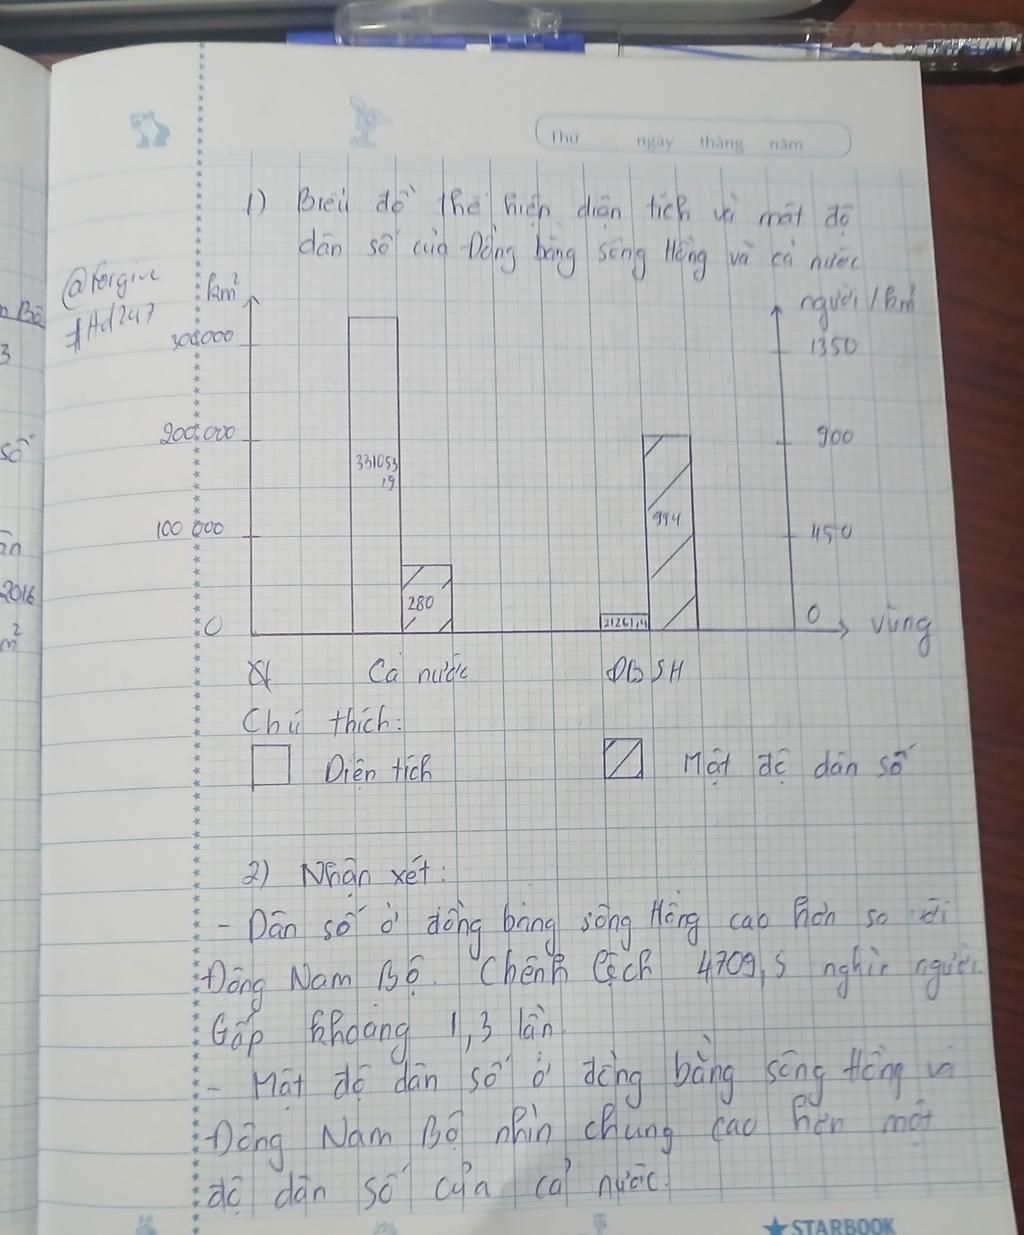 Thứ ngày tháng năm
1) Biểu đồ thể hiện diện tích và mật độ
dân số của Đồng bằng sông Hồng và cả nước
@Forgive
#Ad247
km²
người/km²
300000
1350
200.000
900
331053
,9
994
100 000
450
280
21261,4
0
0
vùng
Cả nước
ĐBSH
Chú thích:
Diện tích
Mật độ dân số
2) Nhận xét:
- Dân số ở đồng bằng sông Hồng cao hơn so với
Đông Nam Bộ. Chênh lệch 4709,5 nghìn người.
Gấp khoảng 1,3 lần
- Mật độ dân số ở đồng bằng sông Hồng và
Đông Nam Bộ nhìn chung cao hơn mật
độ dân số của cả nước.
STARBOOK
Bộ
3
số
2016
m²